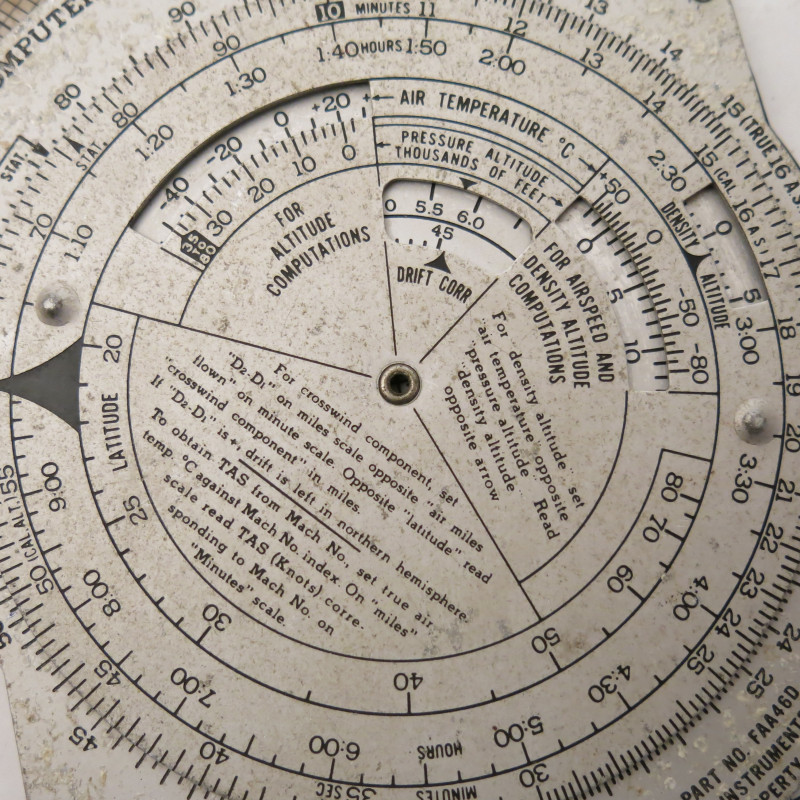 COMPUTER
90
10 MINUTES 11
12
13
14
15 (TRUE
16 A.S.
80
90
1:30
1:40 HOURS 1:50
2:00
12
13
14
2:30
15 (CAL.
16 A S
17
18
19
20
21
22
23
24
25
STAT.
STAT.
80
1:20
70
1:10
-40
-20
0
+20
+
AIR TEMPERATURE °C
PRESSURE ALTITUDE
THOUSANDS OF FEET
30
20
10
0
FOR
ALTITUDE
COMPUTATIONS
0
5.5
6.0
45
DRIFT CORR
+50
0
-50
-80
0
5
10
FOR AIRSPEED AND
DENSITY ALTITUDE
COMPUTATIONS
DENSITY
ALTITUDE
0
5
3:00
3:30
4:00
4:30
5:00
HOURS
6:00
7:00
8:00
9:00
For density altitude set
"air temperature" opposite
"pressure altitude" Read
"density altitude"
opposite arrow
For crosswind component, set
"D2-D1" on miles scale opposite "air miles
flown" on minute scale. Opposite "latitude" read
"crosswind component" in miles.
If "D2-D1" is +, drift is left in northern hemisphere.
To obtain TAS from Mach No., set true air
temp. °C against Mach No. index On "miles"
scale read TAS (Knots) corre-
sponding to Mach No. on
"Minutes" scale.
LATITUDE
20
25
30
40
50
60
70
80
55
50 (CAL. ALT.)
45
40
35 SEC
MINUTES
30
24
25
45
PART NO. FAA460
INSTRUMENT